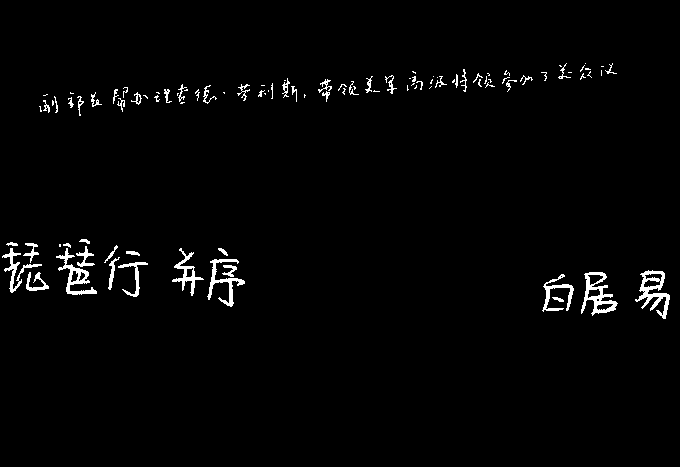 副部长帮办理查德·劳利斯,带领美军高级将领参加了美众议
琵琶行 并序 白居易